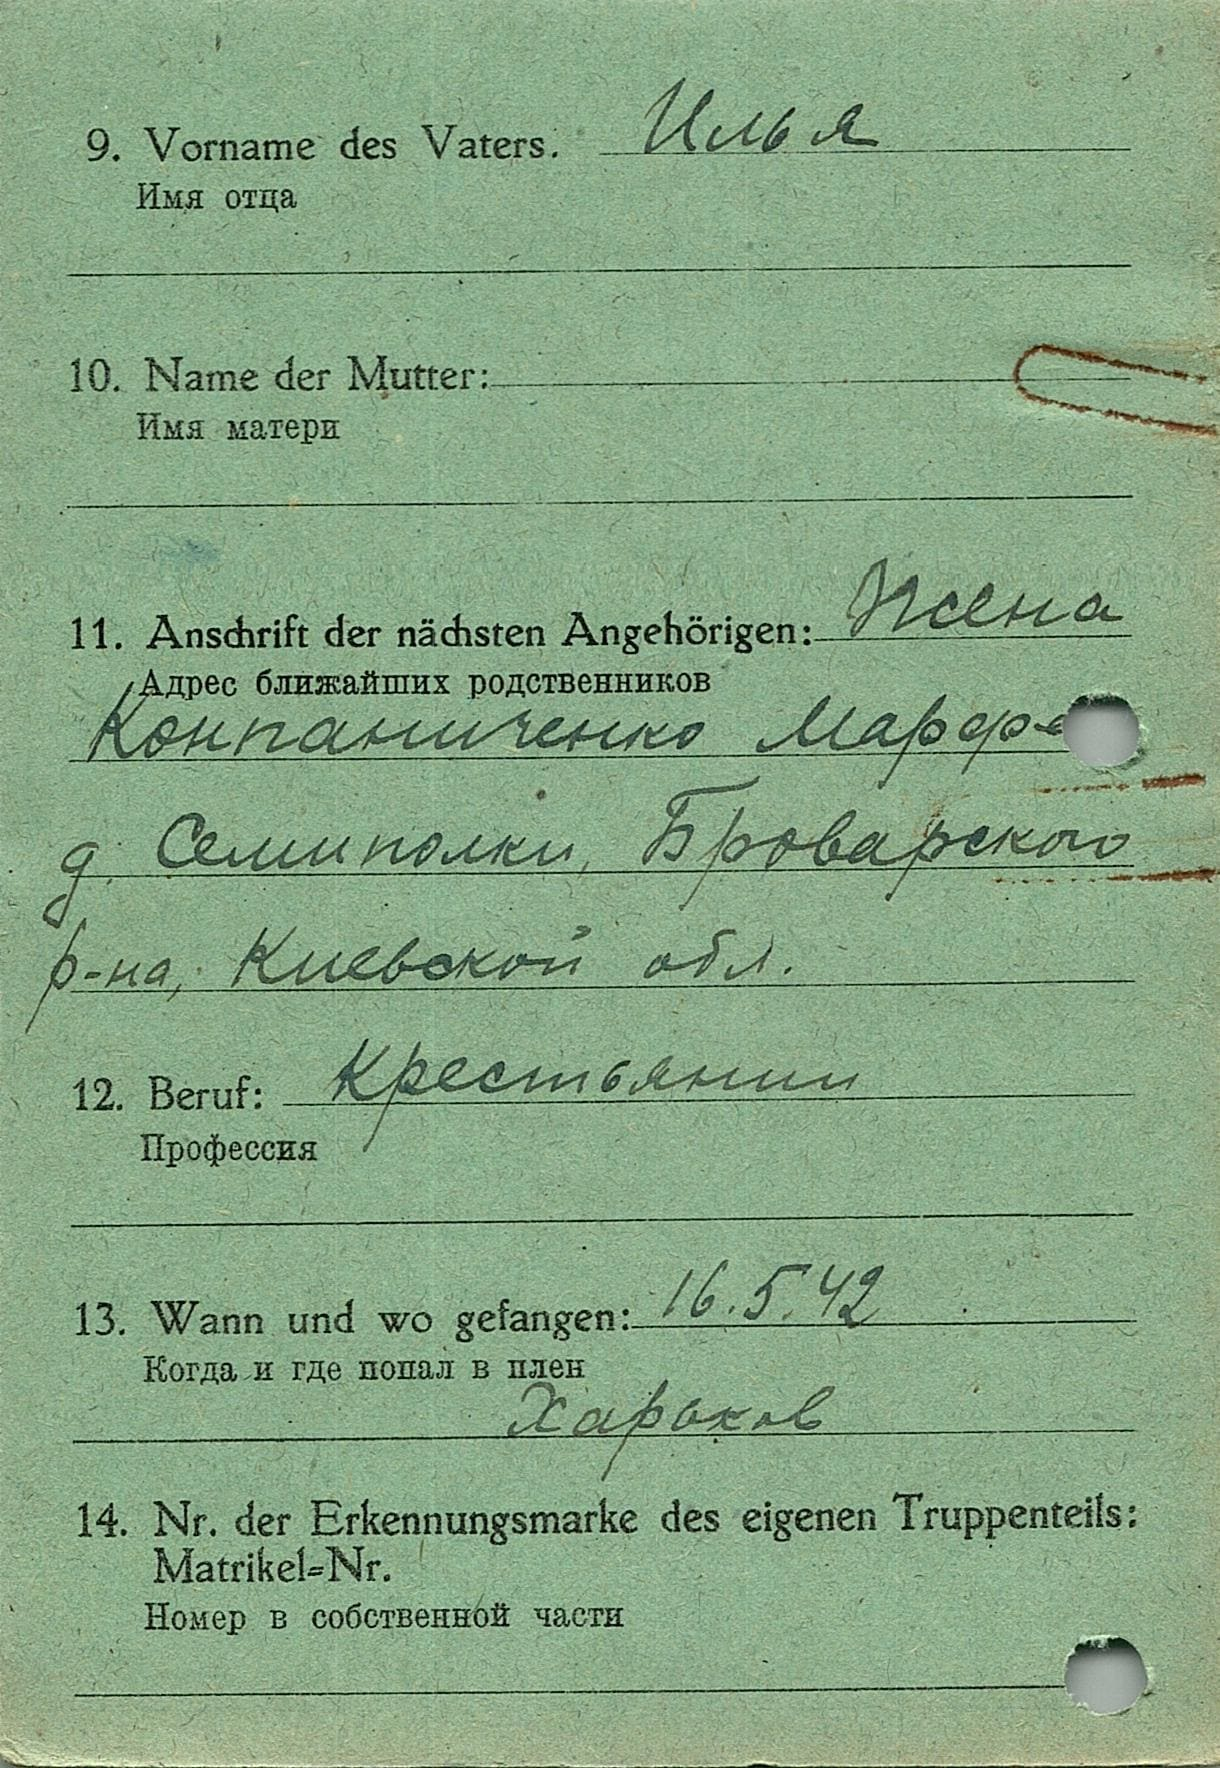 9. Vorname des Vaters. Илья
Имя отца
10. Name der Mutter:
Имя матери
11. Anschrift der nächsten Angehörigen: Жена
Адрес ближайших родственников
Конпаниченко Марфа
д. Семиполки, Броварского
р-на, Киевской обл.
12. Beruf: Крестьянин
Профессия
13. Wann und wo gefangen: 16.5.42
Когда и где попал в плен
Харьков
14. Nr. der Erkennungsmarke des eigenen Truppenteils:
Matrikel=Nr.
Номер в собственной части